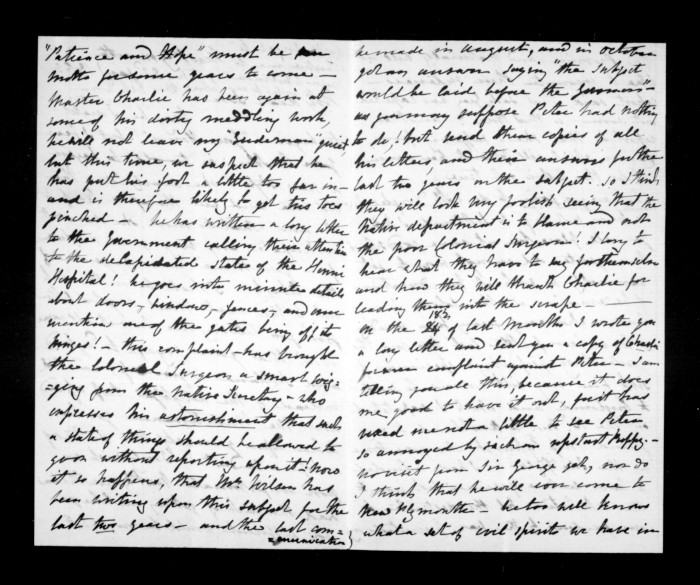 "Patience and Hope" must be our
motto for some years to come —
Master Charlie has been again at
some of his dirty meddling work,
he will not leave my "Gudeman" quiet,
but this time, we suspect that he
has put his foot a little too far in —
and is therefore likely to get his toes
pinched — he has written a long letter
to the Government calling their attention
to the delapidated state of the Henui
Hospital! he goes into minute details
about doors, windows, fences, and even
mention one of the gates being off its
hinges! — this complaint has brought
the Colonial Surgeon a smart wig=
=ging from the Native Secretary — who
expresses his astonishment that such
a state of things should be allowed to
go on without reporting upon it: now
it so happens, that Mr. Wilson has
been writing upon this subject for the
last two years — and the last com=
=munication}
he made in August, and in October
got an answer saying "the subject
would be laid before the Governor" —
as you may suppose Peter had nothing
to do, but send them copies of all
his letters, and their answers for the
last two years on the subject. So I think
they will look very foolish seeing that the
Native department is to blame and not
the poor Colonial Surgeon! I long to
hear what they have to say for themselves
and how they will thank Charlie for
leading them into the scrape. —
on the 18th, of last month I wrote you
a long letter and sent you a copy of Charlie's
former complaint against Peter — I am
telling you all this, because it does
me good to have it out, for it has
vexed me not a little to see Peter
so annoyed by such an upstart Puppy. —
no visit from Sir George yet, nor do
I think that he will ever come to
New Plymouth — he too well knows
what a set of evil spirits we have in